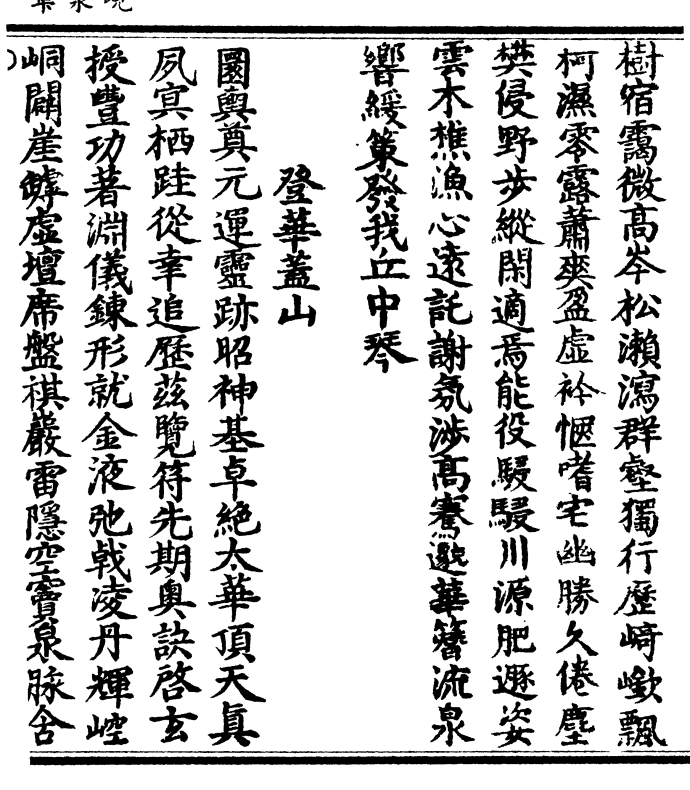 樹宿靄微高岑松瀨瀉群壑獨行歷崎嶔飄
柯濕零露蕭爽盈虛衿愜嗜宅幽勝久倦塵
樊侵野步縱閑適焉能役駸駸川源肥遯姿
雲木樵漁心遠託謝氛涉高騫邈華簪流泉
響綏策發我丘中琴
登華蓋山
圜輿奠元運靈跡昭神基卓絕太華頂天真
夙寘栖跬從幸追歷茲覽符先期奧訣啓玄
授豐功著淵儀鍊形就金液弛戟凌丹輝崆
峒闢崖罅虛壇席盤祺嚴雷隱空竇泉脉含